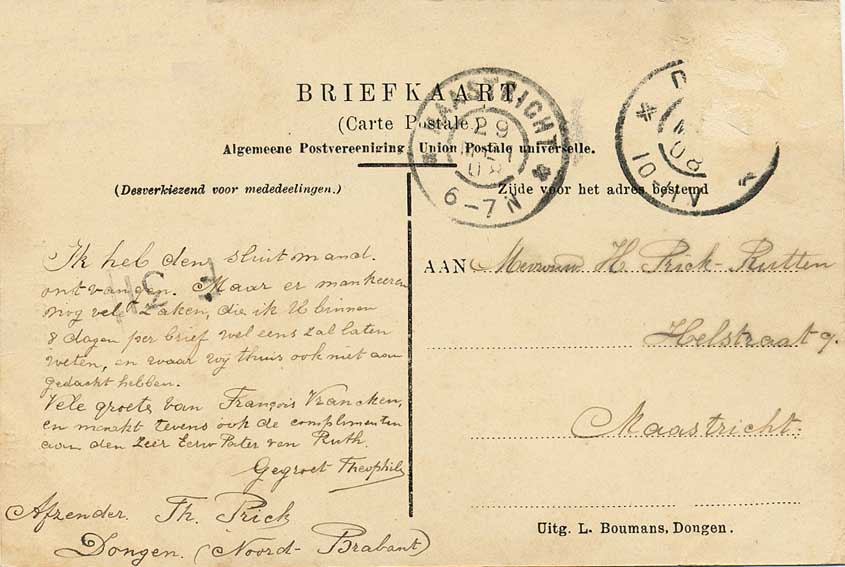 BRIEFKAART.
(Carte Postale)
Algemeene Postvereeniging Union Postale universelle.
(Desverkiezend voor mededeelingen.)
Zijde voor het adres bestemd
MAASTRICHT
29
08
6-7N
08
10-11V
Ik heb den sluitmand
ontvangen. Maar er mankeeren
nog vele zaken, die ik U binnen
8 dagen per brief wel eens zal laten
weten, en waar wij thuis ook niet aan
gedacht hebben.
Vele groete van François Vrancken,
en maakt tevens ook de complimenten
aan den Zeer Eerw Pater van Ruth.
Gegroet Theophile
Afzender. Th. Prick
Dongen. (Noord-Brabant)
AAN Mevrouw H Prick-Rutten
Helstraat 9.
Maastricht.
Uitg. L. Boumans, Dongen.